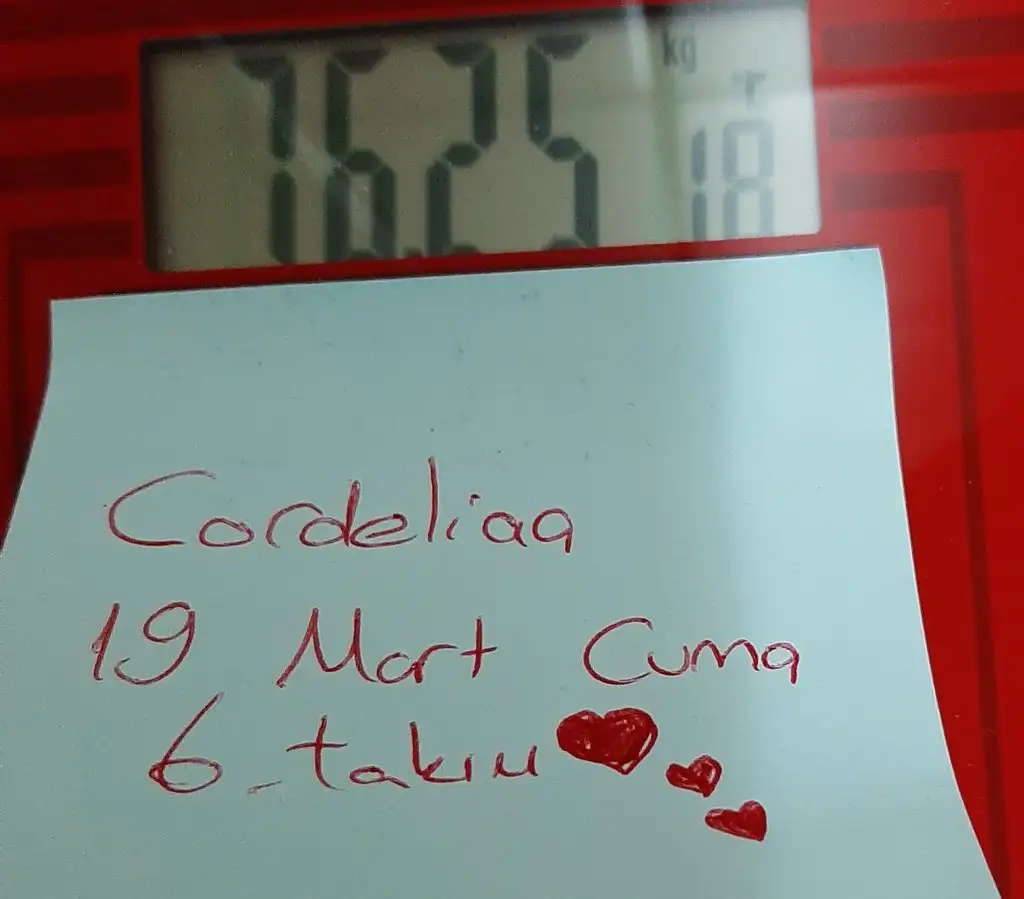 76.25 kg
18
Cordeliaa
19 Mart Cuma
6. takım